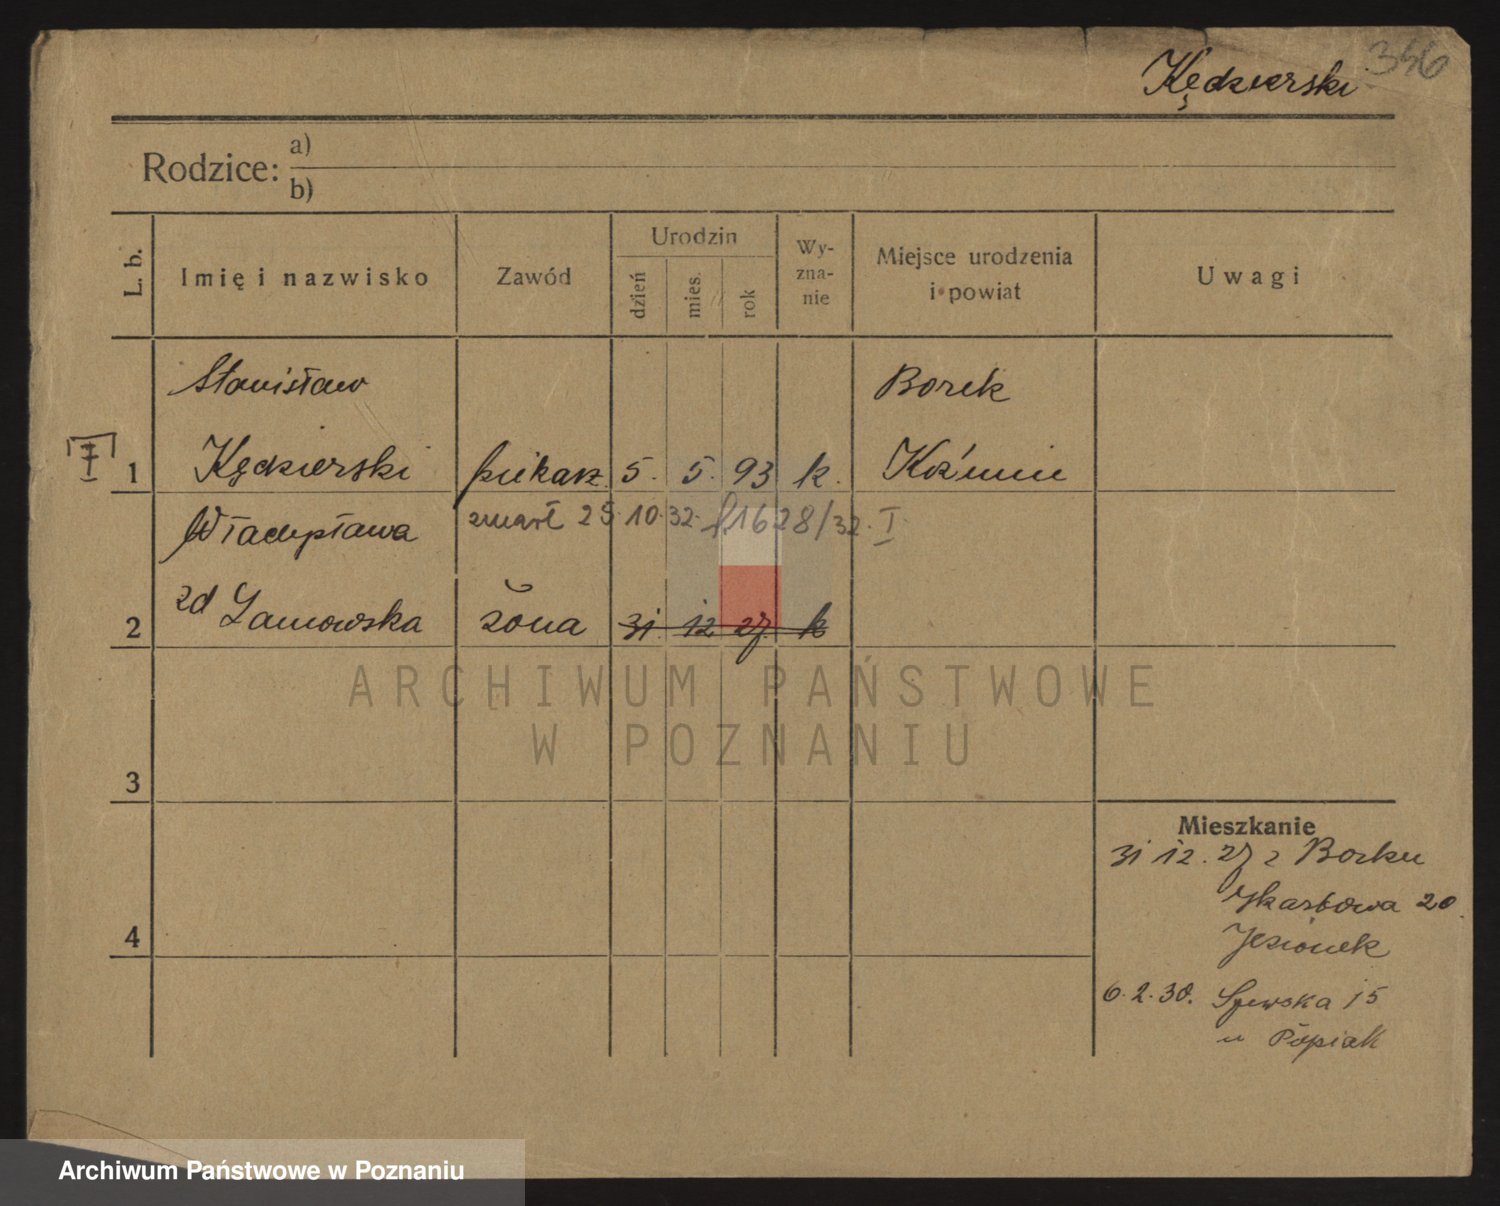 Kędzierski 346
Rodzice: a)
b)
L. b. Imię i nazwisko Zawód Urodzin dzień mies. rok Wy-zna-nie Miejsce urodzenia i powiat Uwagi
Stanisław Borek
1 Kędzierski piekarz 5. 5. 93 k. Koźmin
Władysława zmarł 25.10.32. 1628/32. I
2 zd Lamowska żona 31. 12 27. k
3
4
Mieszkanie
31 12. 27 z Borku
Skarbowa 20.
Jezionek
6.2.30. Szewska 15
u Popiak
ARCHIWUM PAŃSTWOWE
W POZNANIU
Archiwum Państwowe w Poznaniu